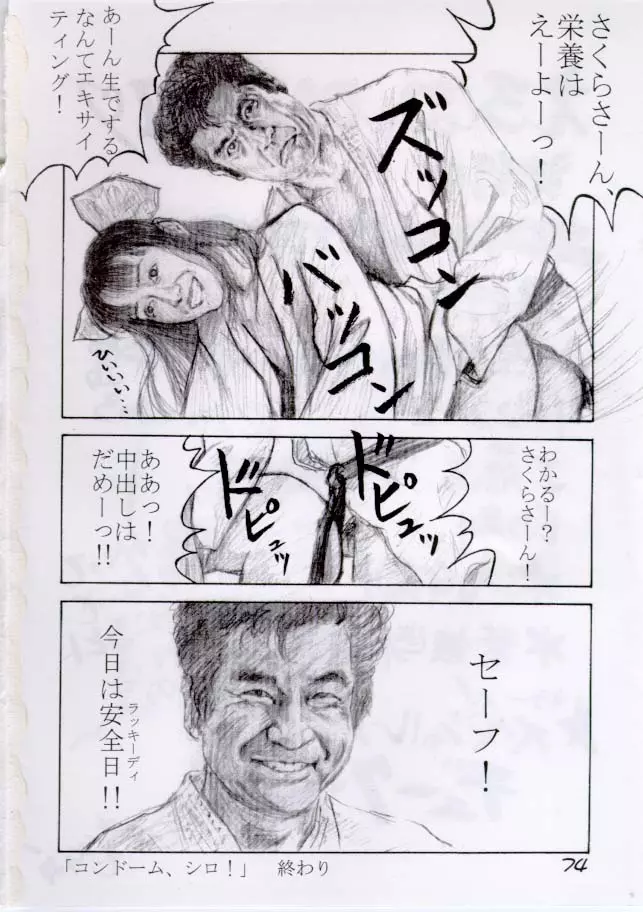 さくらさーん、
栄養は
えーよーっ！
あーん生でする
なんてエキサイ
ティング！
ズッコン
バッコン
ひいいい…
わかるー？
さくらさーん！
ドピュッ
ドピュッ
ああっ！
中出しは
だめーっ!!
セーフ！
今日は安全日!!
ラッキーディ
「コンドーム、シロ！」　終わり
74